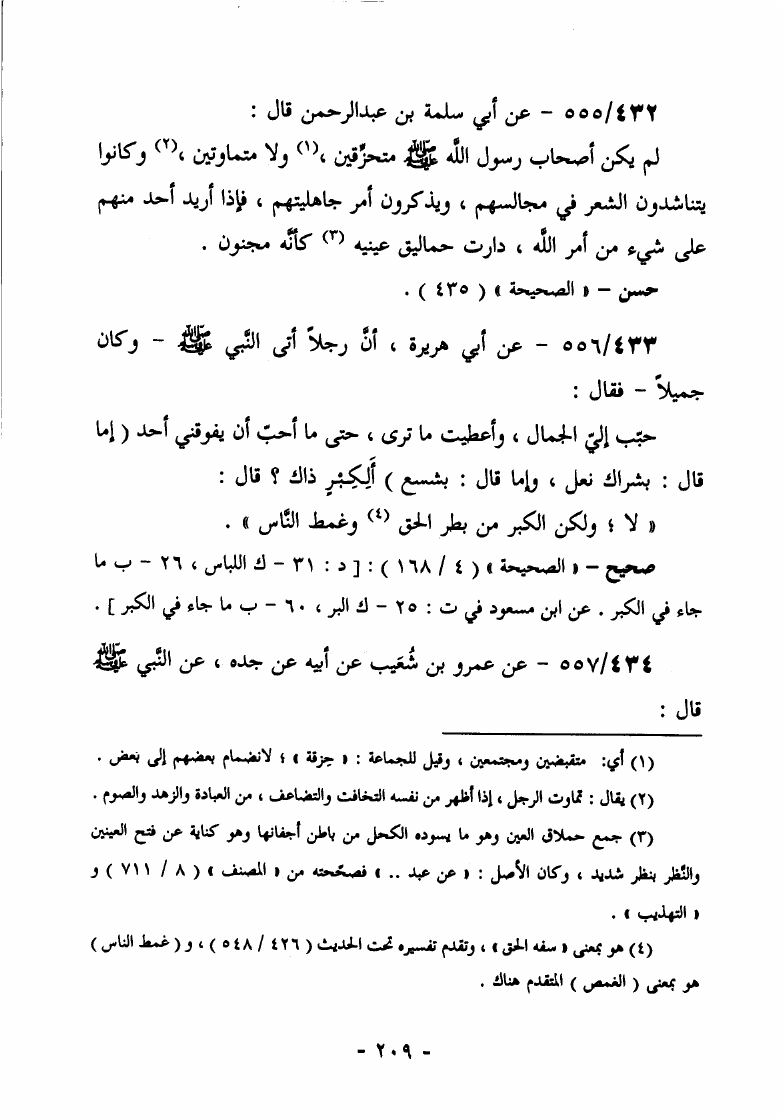 ٥٥٥/٤٣٢ – عن أبي سلمة بن عبدالرحمن قال :
لم يكن أصحاب رسول اللَّه ﷺ متحزِّقين ،(١) ولا متماوتين ،(٢) وكانوا
يتناشدون الشعر في مجالسهم ، ويذكرون أمر جاهليتهم ، فإذا أريد أحد منهم
على شيء من أمر اللَّه ، دارت حماليق عينيه (٣) كأنَّه مجنون .
حسن – « الصحيحة » ( ٤٣٥ ) .
٥٥٦/٤٣٣ – عن أبي هريرة ، أنَّ رجلاً أتى النَّبي ﷺ – وكان
جميلاً – فقال :
حبّب إليّ الجمال ، وأعطيت ما ترى ، حتى ما أحبّ أن يفوقني أحد ( إما
قال : بشراك نعل ، وإما قال : بشسع ) أَلِكِبْرٍ ذاك ؟ قال :
« لا ؛ ولكن الكبر من بطر الحق (٤) وغمط النَّاس » .
صحيح – « الصحيحة » ( ٤ / ١٦٨ ) : [ د : ٣١ – ك اللباس ، ٢٦ – ب ما
جاء في الكبر . عن ابن مسعود في ت : ٢٥ – ك البر ، ٦٠ – ب ما جاء في الكبر ] .
٥٥٧/٤٣٤ – عن عمرو بن شُعَيب عن أبيه عن جده ، عن النَّبي ﷺ
قال :
(١) أي: متقبضين ومجتمعين ، وقيل للجماعة : « حِزقة » ؛ لانضمام بعضهم إلى بعض .
(٢) يقال : تماوت الرجل ، إذا أظهر من نفسه التخافت والتضاعف ، من العبادة والزهد والصوم .
(٣) جمع حملاق العين وهو ما يسوده الكحل من باطن أجفانها وهو كناية عن فتح العينين
والنَّظر بنظر شديد ، وكان الأصل : « عن عبد .. » فصحّحته من « المصنف » ( ٨ / ٧١١ ) و
« التهذيب » .
(٤) هو بمعنى « سفه الحق » ، وتقدم تفسيره تحت الحديث ( ٤٢٦ / ٥٤٨ ) ، و ( غمط الناس )
هو بمعنى ( الغمص ) المتقدم هناك .
- ٢٠٩ -